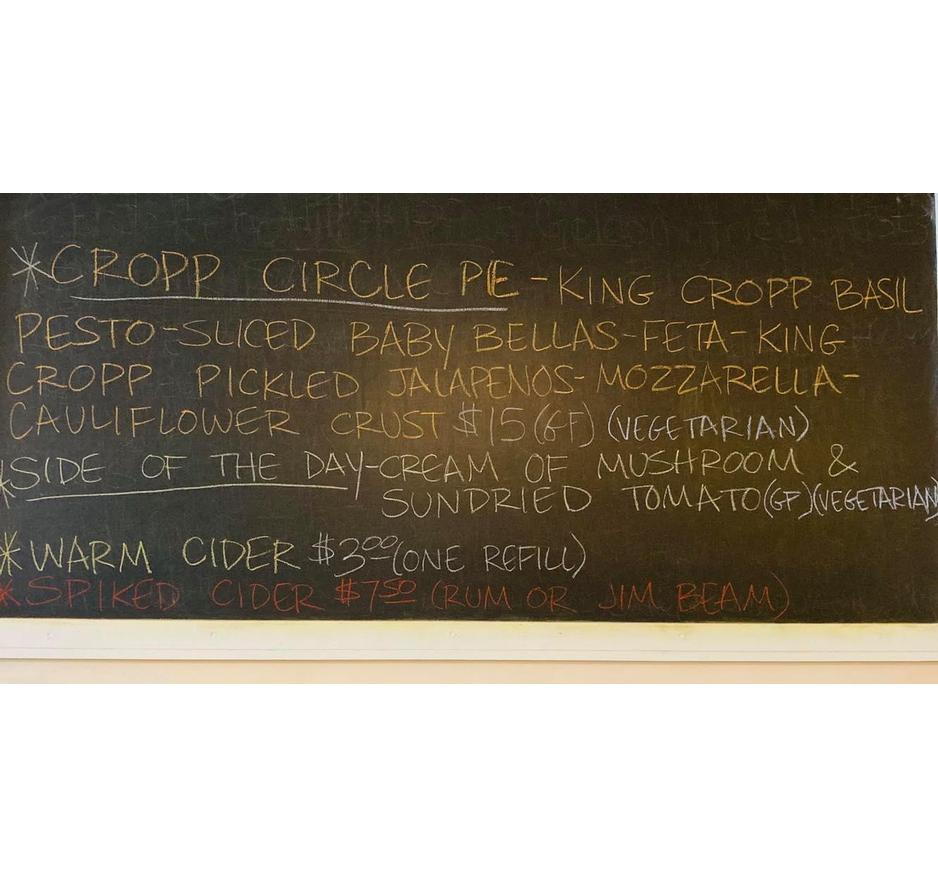 *CROPP CIRCLE PIE - KING CROPP BASIL
PESTO-SLICED BABY BELLAS-FETA-KING
CROPP PICKLED JALAPENOS-MOZZARELLA-
CAULIFLOWER CRUST $15 (GF) (VEGETARIAN)
*SIDE OF THE DAY-CREAM OF MUSHROOM &
SUNDRIED TOMATO (GF) (VEGETARIAN)
*WARM CIDER $3.00 (ONE REFILL)
*SPIKED CIDER $7.50 (RUM OR JIM BEAM)